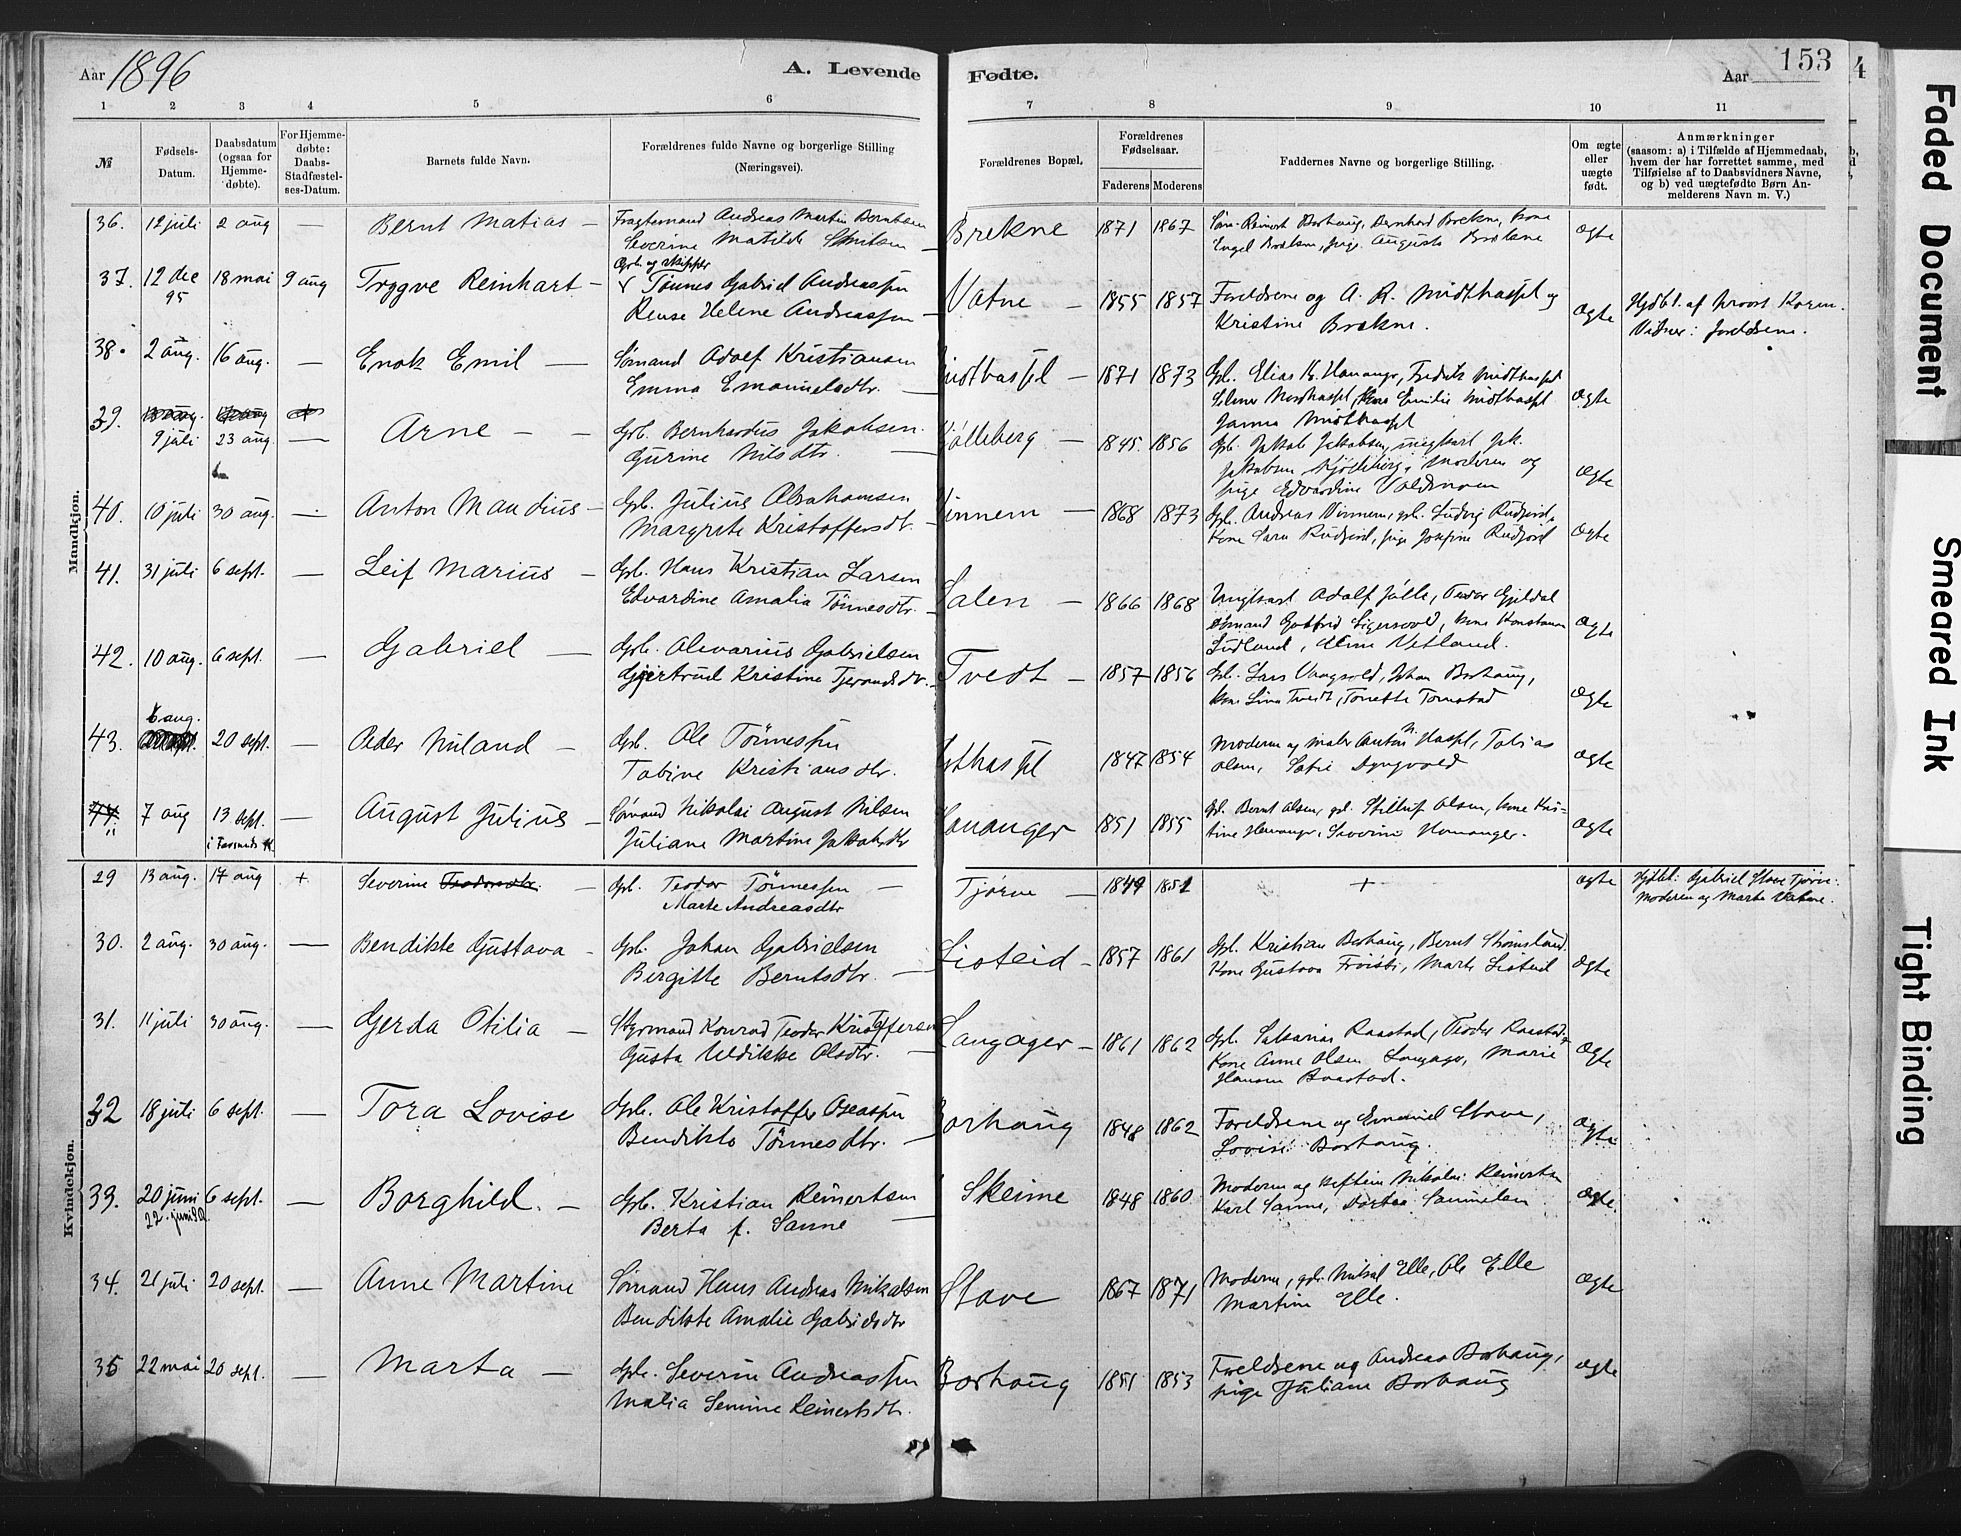 Aar 1896
A. Levende Fødte.
Aar
153
4
1 2 3 4 5 6 7 8 9 10 11
№
Fødsels-Datum.
Daabsdatum (ogsaa for Hjemme-døbte).
For Hjemme-døbte: Daabs-Stadfæstel-ses-Datum.
Barnets fulde Navn.
Forældrenes fulde Navne og borgerlige Stilling (Næringsvei).
Forældrenes Bopæl.
Forældrenes Fødselsaar.
Faderens Moderens
Faddernes Navne og borgerlige Stilling.
Om ægte eller uægte født.
Anmærkninger
(saasom: a) i Tilfælde af Hjemmedaab, hvem der har forrettet samme, med Tilføielse af to Daabsvidners Navne, og b) ved uægtefødte Børn An-melderens Navn m. V.)
Mandkjøn.
36. 12 juli 2 aug — Bernt Matias — Fragtemand Andreas Martin Berntsen Brekne 1871 1867 Reinert Borhaug, Bernhard Brekne, kone
Severine Matilde — Engel Brekne, pige Augusta Brekne ægte
37. 12 dec 95 18 mai 9 aug Trygve Reinhart — Grb. og skipper
Tønnes Gabriel Andreassen Vatne — 1855 1857 Foreldrene og A. R. Midthassel og
Rense Helene Andreassen — Kristine Brekne. ægte Hjdbt. af provst Koren.
Vidner: foreldrene.
38. 2 aug. 16 aug. — Enok Emil — Sømand Adolf Kristiansen Midthassel — 1871 1873 Gb. Elias B. Hananger, Fredrik Midthassel
Emma Emanuelsdtr. — Midthassel, Emilie Midthassel ægte
Janna Midthassel
39. 9 juli 23 aug. — Arne — Grb. Bernhardus Jakobsen Kjølleberg — 1845 1856 Gb. Jakob Jakobsen, ungkarl Jak.
Gurine Nilsdtr. — Jakobsen Kjølleberg, Moderen og
pige Edvardine ægte
40. 10 juli 30 aug. — Anton Mandius — Grb. Julius Abrahamsen Vinnem — 1868 1873 Gb. Andreas Vinnem, gb. Ludvig Rudjord,
Margrete Kristoffersdt. Kone Sara Rudjord, pige Josefine Rudjord ægte
41. 31 juli 6 sept. — Leif Marius — Grb. Hans Kristian Larsen Salen — 1866 1868 Ungkarl Adolf Jølle, Teodor Gjeldal
Edvardine Amalia Tønnesdtr. — Sømand Gotfrid Sigersvold, kone Konstanse ægte
Sudland, Aline Vetland.
42. 10 aug. 6 sept. — Gabriel — Grb. Alevarius Gabrielsen Tvedt — 1857 1856 Gb. Lars Vangsvold, Johan Borhaug,
Gjertrud Kristine Tjerandsdtr. Kone Lina Tvedt, Tonette Tomstad ægte
43. 6 aug. 20 sept. — Peder Niland — Grb. Ole Tønnessen Østhassel 1847 1854 Moderen og maler Anton N. Hassel, Tobias
Tobine Kristiansdtr. Olsen, Dyngvold ægte
44. 7 aug 13 sept. i Farsunds K. — August Julius — Sømand Nikolai August Nilsen Hananger 1851 1855 Gb. Bernt Olsen, gb. Olsen, kone Kris-
Juliane Martine Jakobsdtr tine Hananger, Severine Hananger. ægte
Kvindekjøn.
29 13 aug. 17 aug + Severine Teodorsdtr. — Grb. Teodor Tønnessen — Tjørve — 1849 1851 + ægte Hjdbt: Gabriel Stave Tjørve.
Marte Andreasdtr Moderen og Marta Vatne.
30. 2 aug. 30 aug. — Bendikte Gustava — Grb. Johan Gabrielsen Listeid — 1857 1861 Gb. Kristian Borhaug, Bernt Strømsland.
Bergitte Berntsdtr. — Kone Gustava Frøisti, Marte Listeid ægte
31. 11 juli 30 aug. — Gerda Otilia — Styrmand Konrad Teodor Kristoffersen Langager — 1861 1862 Gb. Sakarias Raastad, Teodor Raastad
Gusta Uldikke Olsdtr. — Kone Anne Olsen Langager, Marie ægte
Hansen Raastad.
32 18 juli 6 sept. — Tora Lovise Grb. Ole Kristoffer Oseassen Borhaug 1848 1862 Foreldrene og Emanuel Stave,
Bendikte Tønnesdtr. — Lovise Borhaug. ægte
33. 20 juni 6 sept. — Borghild. — Grb. Kristian Reinertsen Skeime 1848 1860 Moderen og Nikolai Reinertsen
22. juni Berta f. Sanne — Karl Sanne, Dortea Samuelsen ægte
34. 21 juli 20 sept. — Anne Martine Sømand Hans Andreas Mikalsen Stave 1867 1871 Moderen, gb. Mikal Elle, Ole Elle
Bendikte Amalie Gabrielsdtr Martine Elle. ægte
35 22 mai 20 sept. — Marta — Grb. Severin Andreassen Borhaug 1851 1853 Foreldrene og Andreas Borhaug,
Malia Semine Reinertsdtr. pige Juliane Borhaug ægte
Faded Document
Smeared Ink
Tight Binding